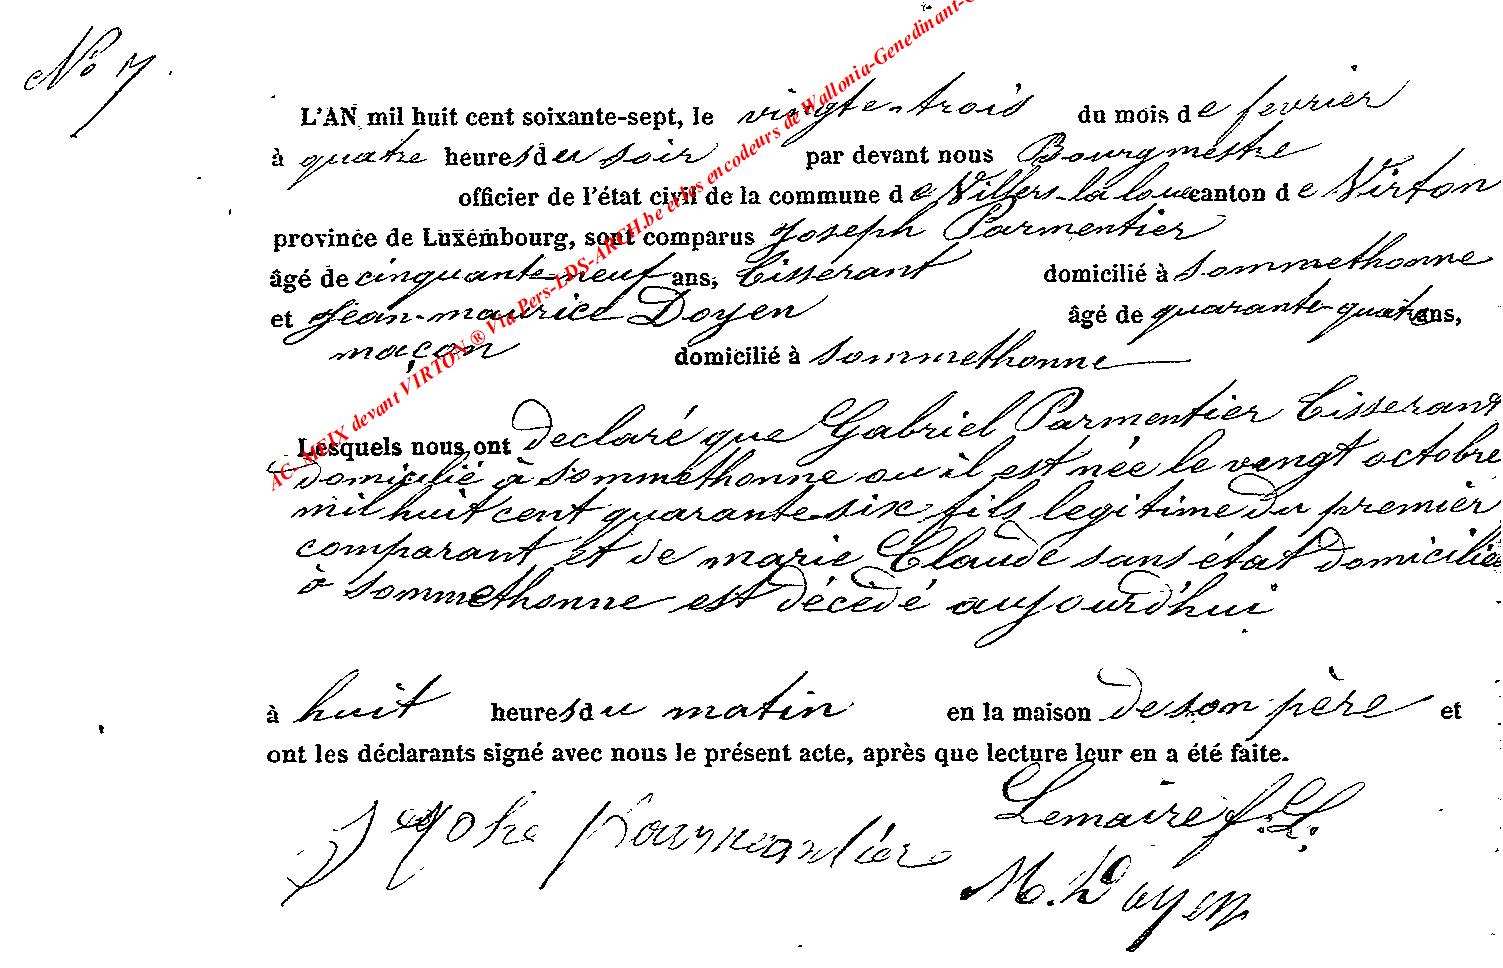 No 7.
L'AN mil huit cent soixante-sept, le vingte-trois du mois de fevrier
à quatre heures du soir par devant nous Bourgmestre
officier de l'état civil de la commune de Villers-la-loue canton de Virton
province de Luxembourg, sont comparus Joseph Parmentier
âgé de cinquante-neuf ans, tisserant domicilié à Sommethonne
et Jean-maurice Doyen âgé de quarante-quatre ans,
maçon domicilié à Sommethonne
Lesquels nous ont declaré que Gabriel Parmentier tisserant
domicilié à Sommethonne ou il est née le vingt octobre
mil huit cent quarante-six fils legitime du premier
comparant et de marie Claude sans état domiciliée
à Sommethonne est décédé aujourd'hui
à huit heures du matin en la maison de son père et
ont les déclarants signé avec nous le présent acte, après que lecture leur en a été faite.
Lemaire f. L.
M. Doyen
AC-MEIX devant VIRTON ® Via Pers-LDS-ARCH.be et les encodeurs de Wallonia-Genedinant-